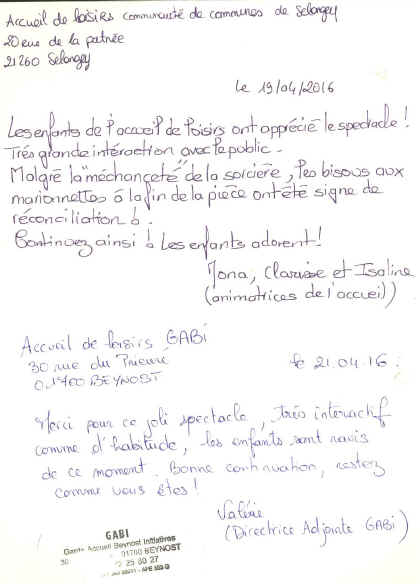 Accueil de loisirs communauté de communes de Selongey
20 rue de la patrie
21260 Selongey
Le 19/04/2016
Les enfants de l'accueil de loisirs ont apprécié le spectacle !
Très grande intéraction avec le public.
Malgré la "méchanceté" de la sorcière, les bisous aux
marionnettes à la fin de la pièce ont été signe de
réconciliation !
Continuez ainsi ! Les enfants adorent !
Mona, Clarisse et Isaline
(animatrices de l'accueil)
Accueil de loisirs GABi
30 rue du Prieuré
01700 BEYNOST
le 21.04.16
Merci pour ce joli spectacle, très interactif
comme d'habitude, les enfants sont ravis
de ce moment. Bonne continuation, restez
comme vous êtes !
Valérie
(Directrice Adjointe GABi)
GABI
Accueil Beynost Initiatives
30
01700 BEYNOST
25 80 27